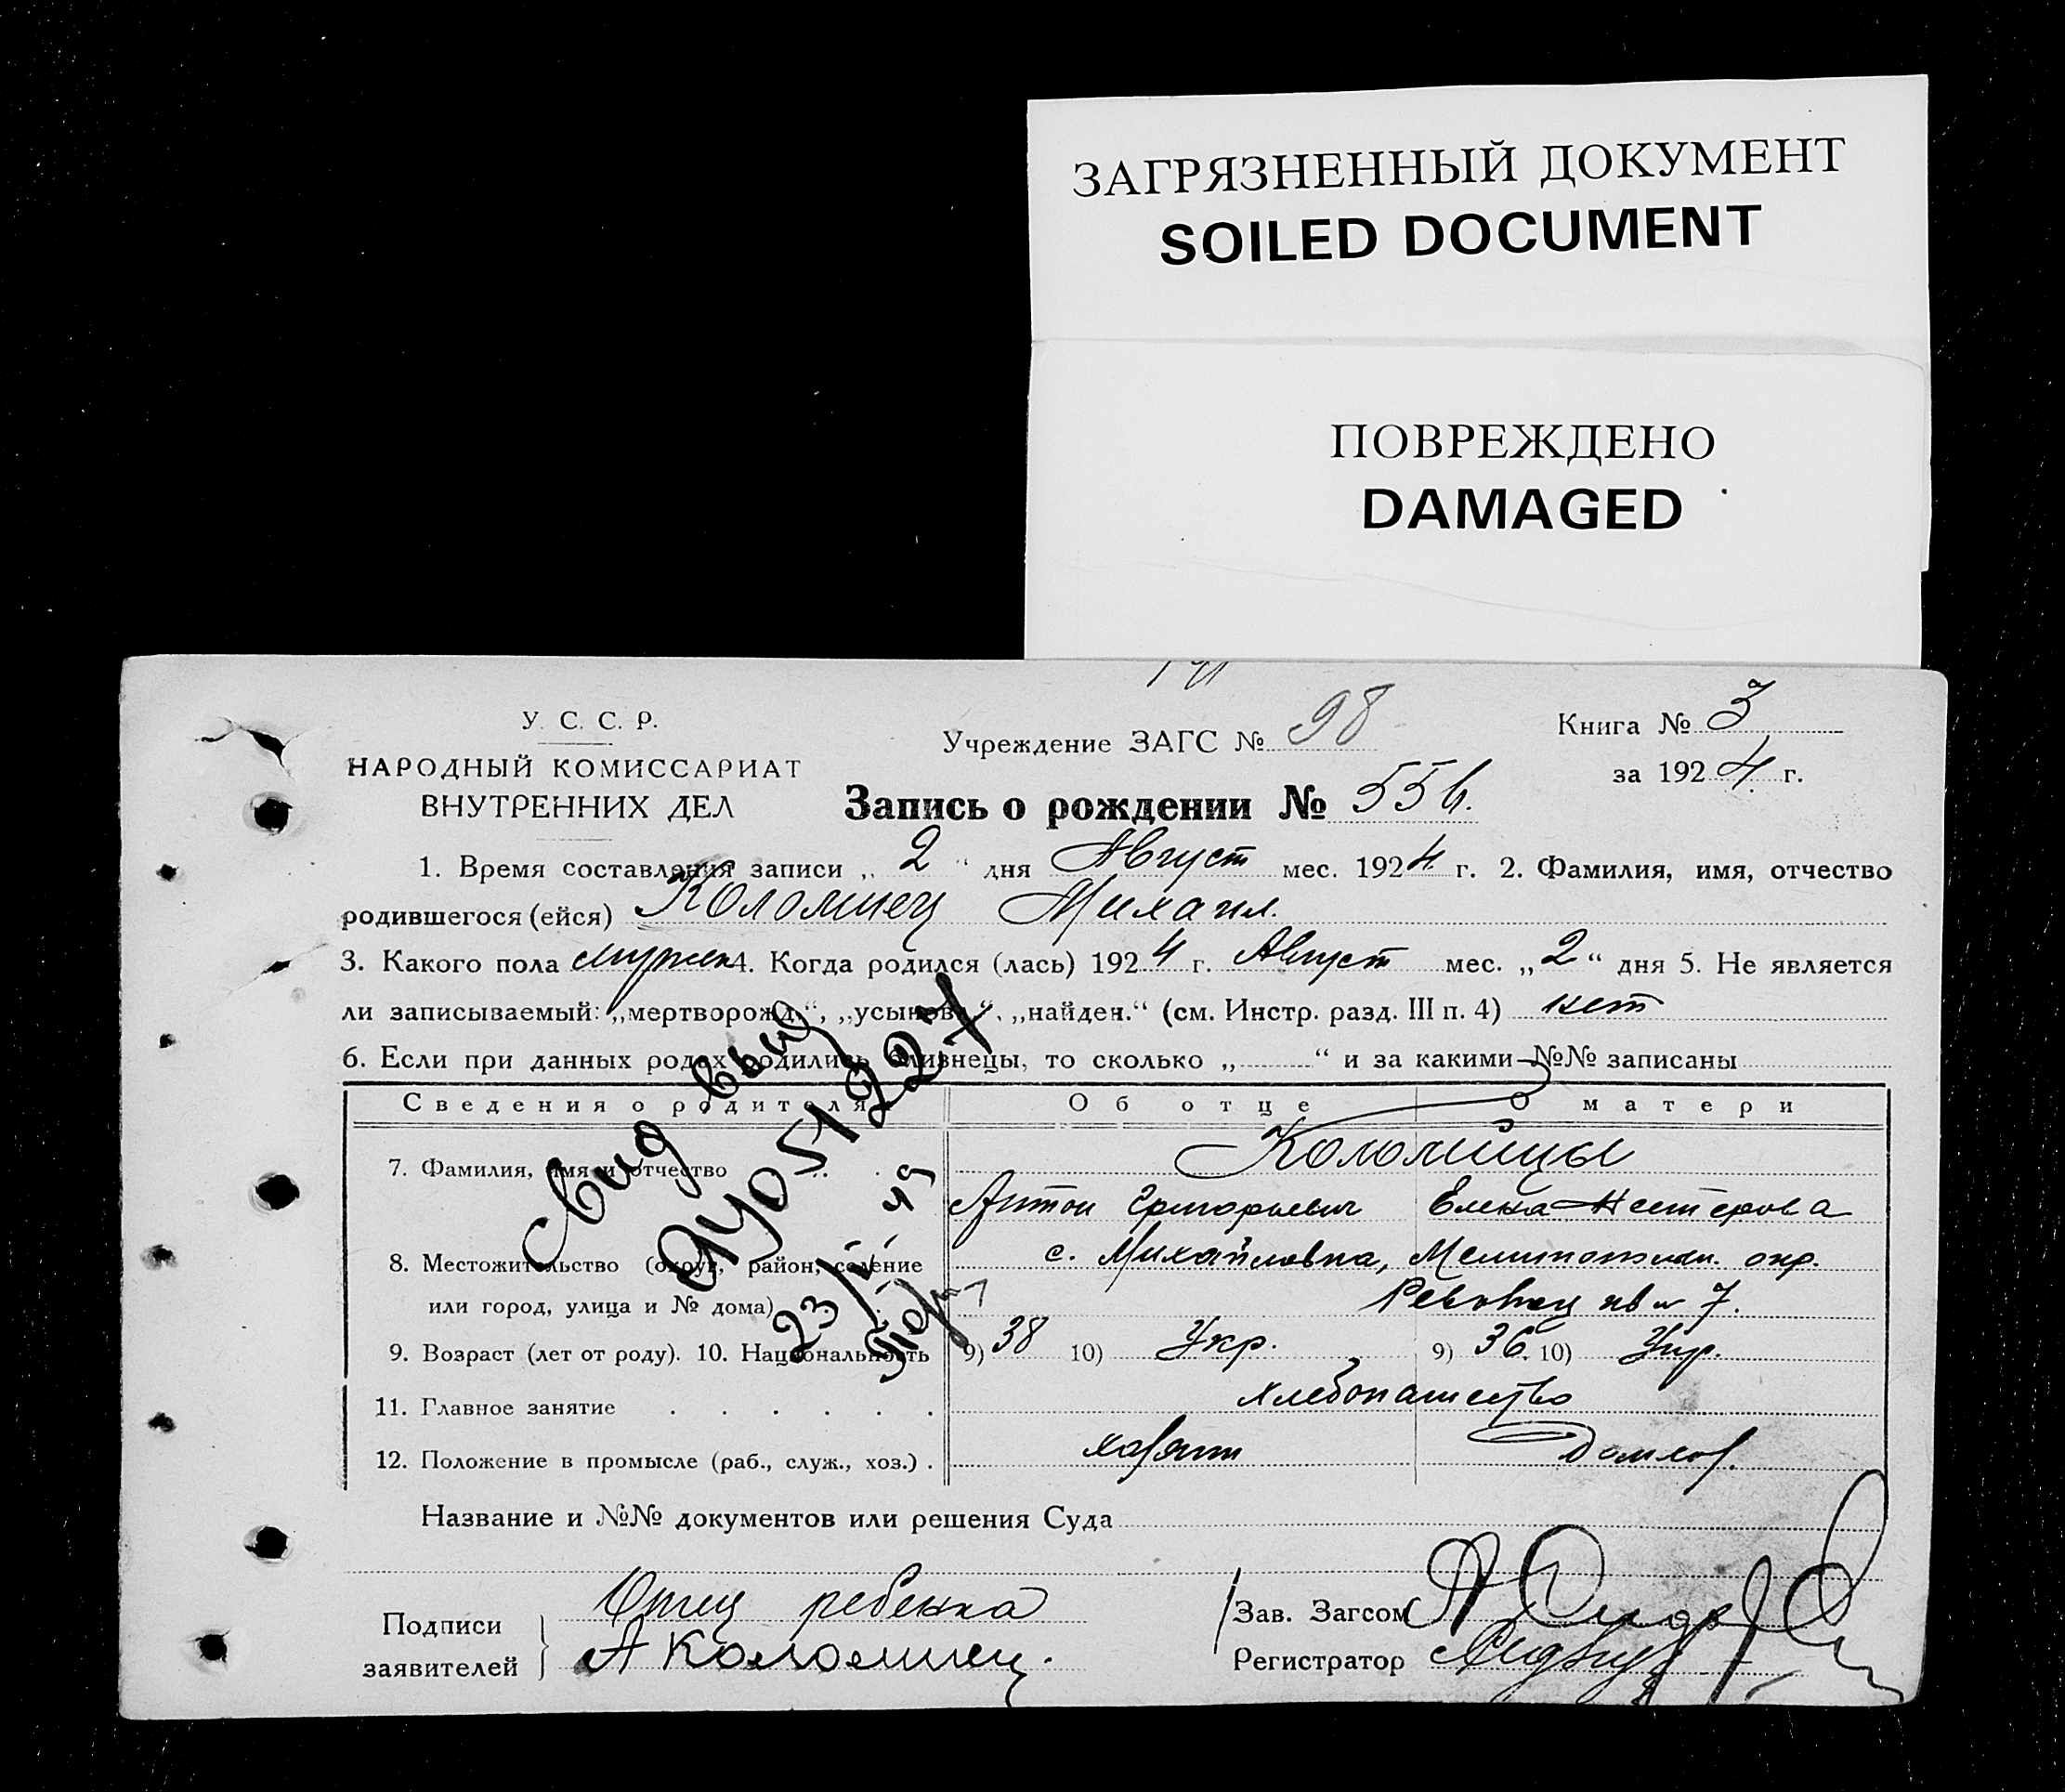 ЗАГРЯЗНЕННЫЙ ДОКУМЕНТ
SOILED DOCUMENT
ПОВРЕЖДЕНО
DAMAGED
У. С. С. Р.
НАРОДНЫЙ КОМИССАРИАТ
ВНУТРЕННИХ ДЕЛ
Учреждение ЗАГС № 98
Книга № 3
за 1924 г.
Запись о рождении № 556.
1. Время составления записи „ 2 “ дня Август мес. 1924 г. 2. Фамилия, имя, отчество
родившегося (ейся) Коломиец Михаил.
3. Какого пола мужск 4. Когда родился (лась) 1924 г. Август мес. „2“ дня 5. Не является
ли записываемый: „мертворожд.“, „усынов.“, „найден.“ (см. Инстр. разд. III п. 4) нет
6. Если при данных родах родились близнецы, то сколько „ “ и за какими №№ записаны
Сведения о родителях Об отце О матери
7. Фамилия, имя и отчество Коломийцы
Антон Григорьевич Елена Нестерова
8. Местожительство (округ, район, селение с. Михайловка, окр.
или город, улица и № дома) 7.
9. Возраст (лет от роду). 10. Национальность 9) 38 10) Укр. 9) 36. 10) Укр.
11. Главное занятие хлебопашество
12. Положение в промысле (раб., служ., хоз.) Домхоз.
Свид выд
ЯЧ051227
23/V 49
Название и №№ документов или решения Суда
Подписи заявителей
Отец ребенка
А Коломиец.
Зав. Загсом
Регистратор